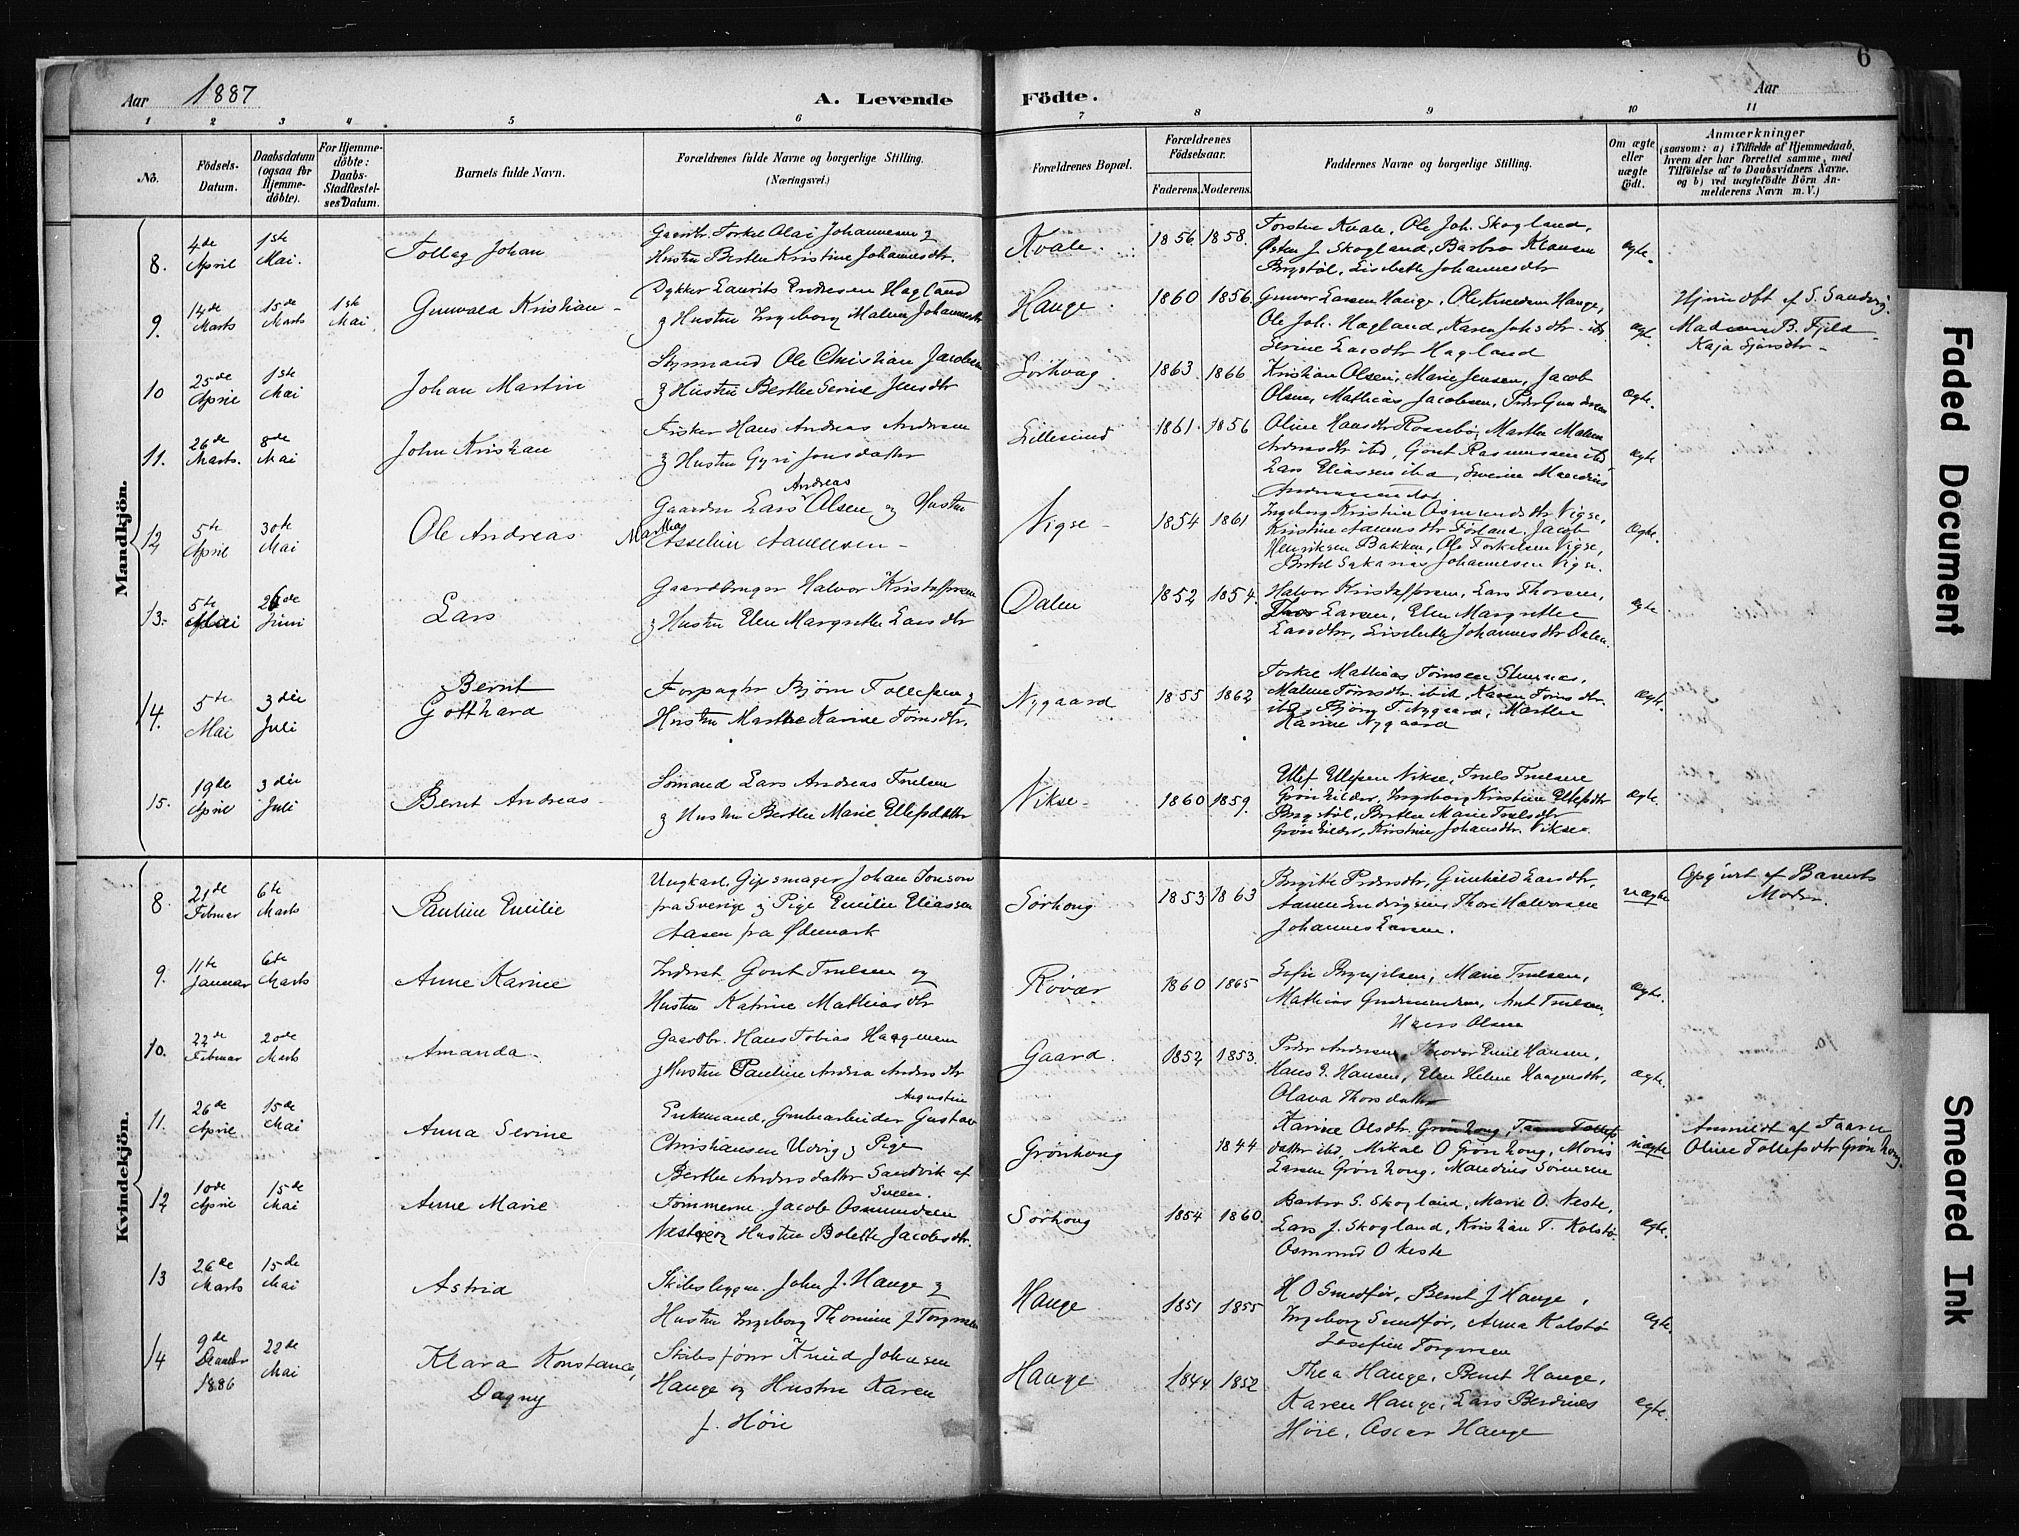 6
Aar 1887 A. Levende Födte. Aar
1 2 3 4 5 6 7 8 9 10 11
No.
Födsels-
Datum.
Daabsdatum
(ogsaa for
Hjemme-
döbte).
For Hjemme-
döbte:
Daabs-
Stadfæstel-
ses Datum.
Barnets fulde Navn.
Forældrenes fulde Navne og borgerlige Stilling.
(Næringsvei.)
Forældrenes Bopæl.
Forældrenes
Födselsaar.
Faderens. Moderens.
Faddernes Navne og borgerlige Stilling.
Om ægte
eller
uægte
födt.
Anmærkninger
(saasom: a) i Tilfælde af Hjemmedaab,
hvem der har forrettet samme, med
Tilföielse af to Daabsvidners Navne.
og b) ved uægtefödte Börn An-
melderens Navn m. V.)
Mandkjön.
8. 4de April 1ste Mai. Tollag Johan
Gaardbr. Torkel Olai Johannesen &
Husten Berthe Kristine Johannesdtr.
Kvale. 1856 1858.
Torsten Kvale, Ole Joh. Skogland,
Østen J. Skogland, Barbro Klausen
Brystøl, Lisbeth Johannesdtr
ægte.
9. 14de Marts 15de Marts 1ste Mai Gunvald Kristian
Dykker Laurits Endresen Hagland
& Husten Ingeborg Malene Johannesdtr
Hauge 1860 1856
Gunvor Larsen Hauge, Ole Knudsen Hauge,
Ole Joh. Hagland, Karen Johsdtr ibd
Serine Larsdtr Hagland
ægt.
Hjemdøbt af S. Sandvig.
Madame B. Fjeld
Kaja
10 25de April 1ste Mai Johan Martin
Styrmand Ole Christian Jacobsen
& Husten Berthe Serine Jensdtr
Sørhoug 1863 1866
Kristian Olsen, Marie Jensen, Jacob
Olsen, Mathias Jacobsen, Peder Gundersen
ægte.
11. 26de Marts. 8de Mai John Kristian
Fisker Hans Andreas Andersen
& Husten Gyri Jonsdatter
Lillesund 1861 1856
Oline Hansdtr Rossebø, Marthe Malene
Andersdtr ibd, Gont Rasmussen ibd
Lars Eliassen ibd, Severine Mauritius
ægte
12 5te April 30te Mai Ole Andreas
Andreas
Gaardm Lars Olsen og Husten
Asseline
Vigse 1854 1861
Ingeborg Kristine Osmundsdtr Vigse,
Kristine Førland, Jacob
Henriksen Bakken, Ole Torkelsen Vigse,
Bertel Sakarias Johannesen Vigse.
ægte.
13. 5te Mai 26de Juni Lars
Gaardbruger Halvor Kristoffersen
& Husten Elen Margrethe Larsdtr
Dalen 1852 1854.
Halvor Kristoffersen, Lars Thorsen,
Thor Larsen, Elen Margrethe
Larsdtr, Liselrette Johannesdtr Dalen
ægte
14. 5te Mai 3die Juli
Bernt
Gotthard
Forpagtr Bjørn Tollefsen &
Husten Marthe Karine Tømsdtr.
Nygaard 1855 1862
Torkel Mathias Tømsen Stennæs,
Malene Tømsdtr. ibid, Karen Tømsdtr.
ibd, Bjørg T. Nygaard, Marthe
Karine Nygaard
ægte.
15. 19de April 3die Juli Bernt Andreas
Sømand Lars Andreas Truelsen
& Husten Berthe Marie Ellefsdatter
Vikse 1860 1859.
Ellef Ellefsen Vikse, Truels Truelsen
Ingeborg Kristine Ellefsdtr
Brystøl, Berthe Marie Truelsdtr
Kristine Johansdtr. Vikse.
ægte.
Kvindekjön.
8. 21de Februar 6te Marts Pauline Emilie
Ungkarl, Gipsmager Johan Jonson
fra Sverige & Pige Emilie Eliassen
Aasen fra Ødemark
Sørhoug 1853 1863
Birgitte Pedersdtr, Gunhild Larsdtr,
Thore Halvorsen
Johannes Larsen.
uægte
Opgivet af Barnets
Moder.
9. 11te Januar 6te Marts Anne Karine
Inderst Gont Truelsen og
Husten Katrine Mathiasdtr
Røvær 1860 1865
Sofie Brynjelsen, Marie Truelsen,
Mathias Gudmundsen, Ant Truelsen,
Hans Olsen
ægte.
10. 22de Februar 20de Marts Amanda
Gaardbr. Hans Tobias Haagensen
& Husten Pauline Andrea Andersdtr
Gaard. 1852 1853.
Peder Andersen, Theodor Emil Hansen,
Hans E. Hansen, Elen Helene Haagensdtr,
Olava Thorsdatter
ægte.
11. 26de April 15de Mai Anna Serine
Augustin
Enkemand, Grubearbeider Gustav
Christiansen Udvig & Pige
Berthe Andersdatter Sandvik af
Sveen.
Grønhoug 1844
Karine Olsdtr. Grønhoug,
datter ibd, Mikal O Grønhoug, Mons
Larsen Grønhoug, Maurius Sørensen
uægte
Anmeldt af Faaren
Oline Tollefsdtr Grønhoug.
12 10de April 15de Mai Anne Marie
Tømmerm Jacob Osmundsen
Neste og Husten Bolette Jacobsdtr.
Sørhoug 1854 1860.
Barbro S. Skogland, Marie O. Neste,
Lars J. Skogland, Kristian T. Kolstø
Osmund O Neste
ægte.
13 26de Marts 15de Mai Astrid
Skibsbyggm. John J. Hauge &
Husten Ingeborg Thomine J. Torgersen
Hauge 1851 1855
H O Smedfør, Bernt J Hauge,
Ingeborg Smedfør, Anna Kolstø
Josefine Torgersen
ægte.
14 9de Decembr 1886 22de Mai
Klara Konstance,
Dagny
Skibsfører Knud Johnsen
Hauge og Hustru Karen
f. Høie
Hauge 1844 1852
Thea Hauge, Bernt Hauge,
Karen Hauge, Lars Berdines
Høie, Oscar Hauge
ægte.
Faded Document
Smeared Ink